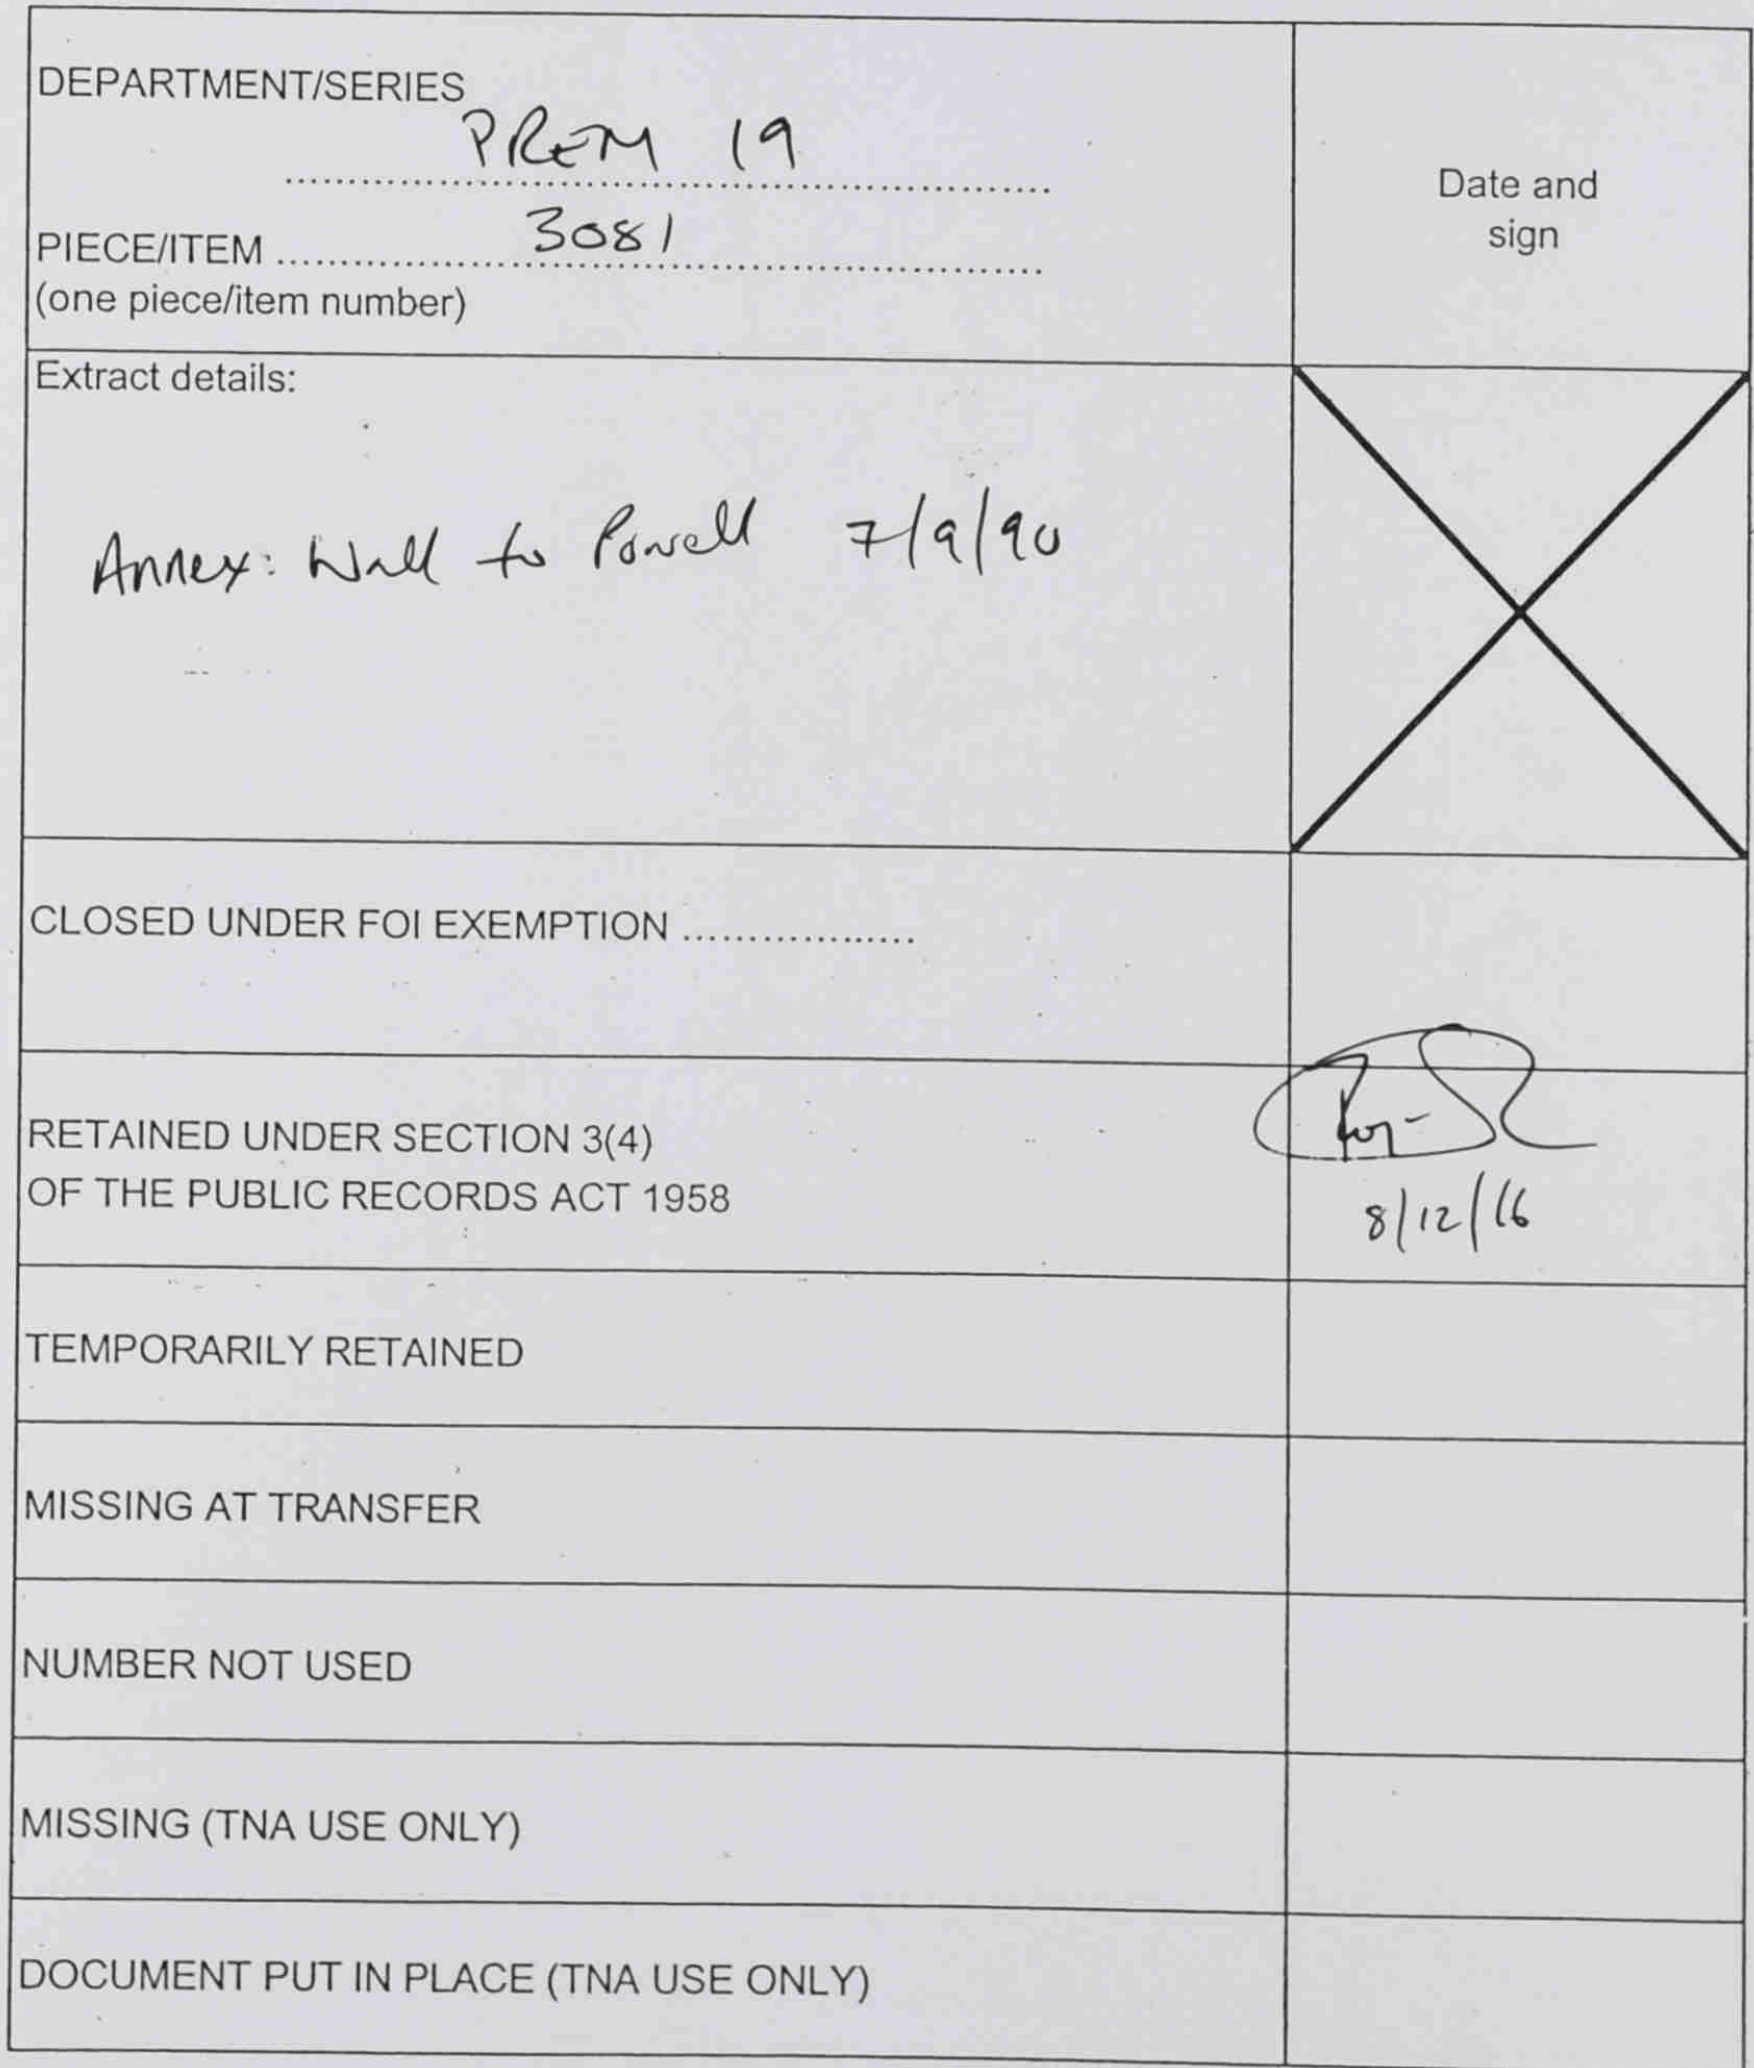 DEPARTMENT/SERIES
PREM 19
Date and
sign
PIECE/ITEM 3081
(one piece/item number)
Extract details:
Annex: Wall to Powell 7/9/90
CLOSED UNDER FOI EXEMPTION ..................
RETAINED UNDER SECTION 3(4)
OF THE PUBLIC RECORDS ACT 1958
8/12/16
TEMPORARILY RETAINED
MISSING AT TRANSFER
NUMBER NOT USED
MISSING (TNA USE ONLY)
DOCUMENT PUT IN PLACE (TNA USE ONLY)